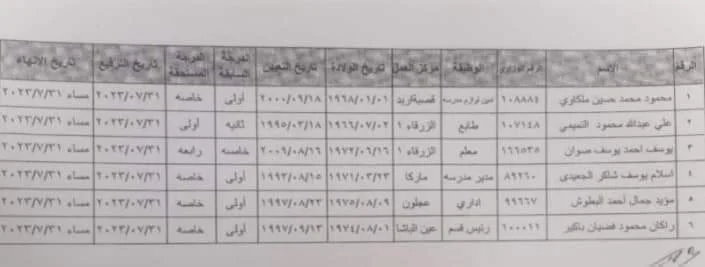 الرقم الاسم الرقم الوزاري الوظيفة مركز العمل تاريخ الولادة تاريخ التعيين الدرجة السابقة الدرجة المستحقة تاريخ الترفيع تاريخ الانهاء
١ محمود محمد حسين ملكاوي ١٠٨٨٨٤ امين لوازم مدرسه قصبة اربد ١٩٦٨/٠١/٠١ ٢٠٠٠/٠٩/١٨ أولى خاصه ٢٠٢٣/٠٧/٣١ مساء ٢٠٢٣/٧/٣١
٢ علي عبدالله محمود التميمي ١٠٧١٤٨ طابع الزرقاء ١ ١٩٦٦/٠٧/٠٢ ١٩٩٥/٠٣/١٨ ثانيه أولى ٢٠٢٣/٠٧/٣١ مساء ٢٠٢٣/٧/٣١
٣ يوسف احمد يوسف صوان ١٦٦٥٣٥ معلم الزرقاء ١ ١٩٧٢/٠٦/١٦ ٢٠٠٩/٠٨/١٦ خامسه رابعه ٢٠٢٣/٠٧/٣١ مساء ٢٠٢٣/٧/٣١
٤ اسلام يوسف شاكر الجعيدي ٨٩٢٦٠ مدير مدرسه ماركا ١٩٧١/٠٣/٢٣ ١٩٩٣/٠٨/١٥ أولى خاصه ٢٠٢٣/٠٧/٣١ مساء ٢٠٢٣/٧/٣١
٥ مؤيد جمال أحمد البطوش ٩٩٦٦٧ اداري عجلون ١٩٧٥/٠٨/٠٩ ١٩٩٧/٠٨/٢٣ أولى خاصه ٢٠٢٣/٠٧/٣١ مساء ٢٠٢٣/٧/٣١
٦ راكان محمود فضيان باكير ١٠٠٠١١ رئيس قسم عين الباشا ١٩٧٤/٠٨/٠١ ١٩٩٧/٠٩/١٣ أولى خاصه ٢٠٢٣/٠٧/٣١ مساء ٢٠٢٣/٧/٣١